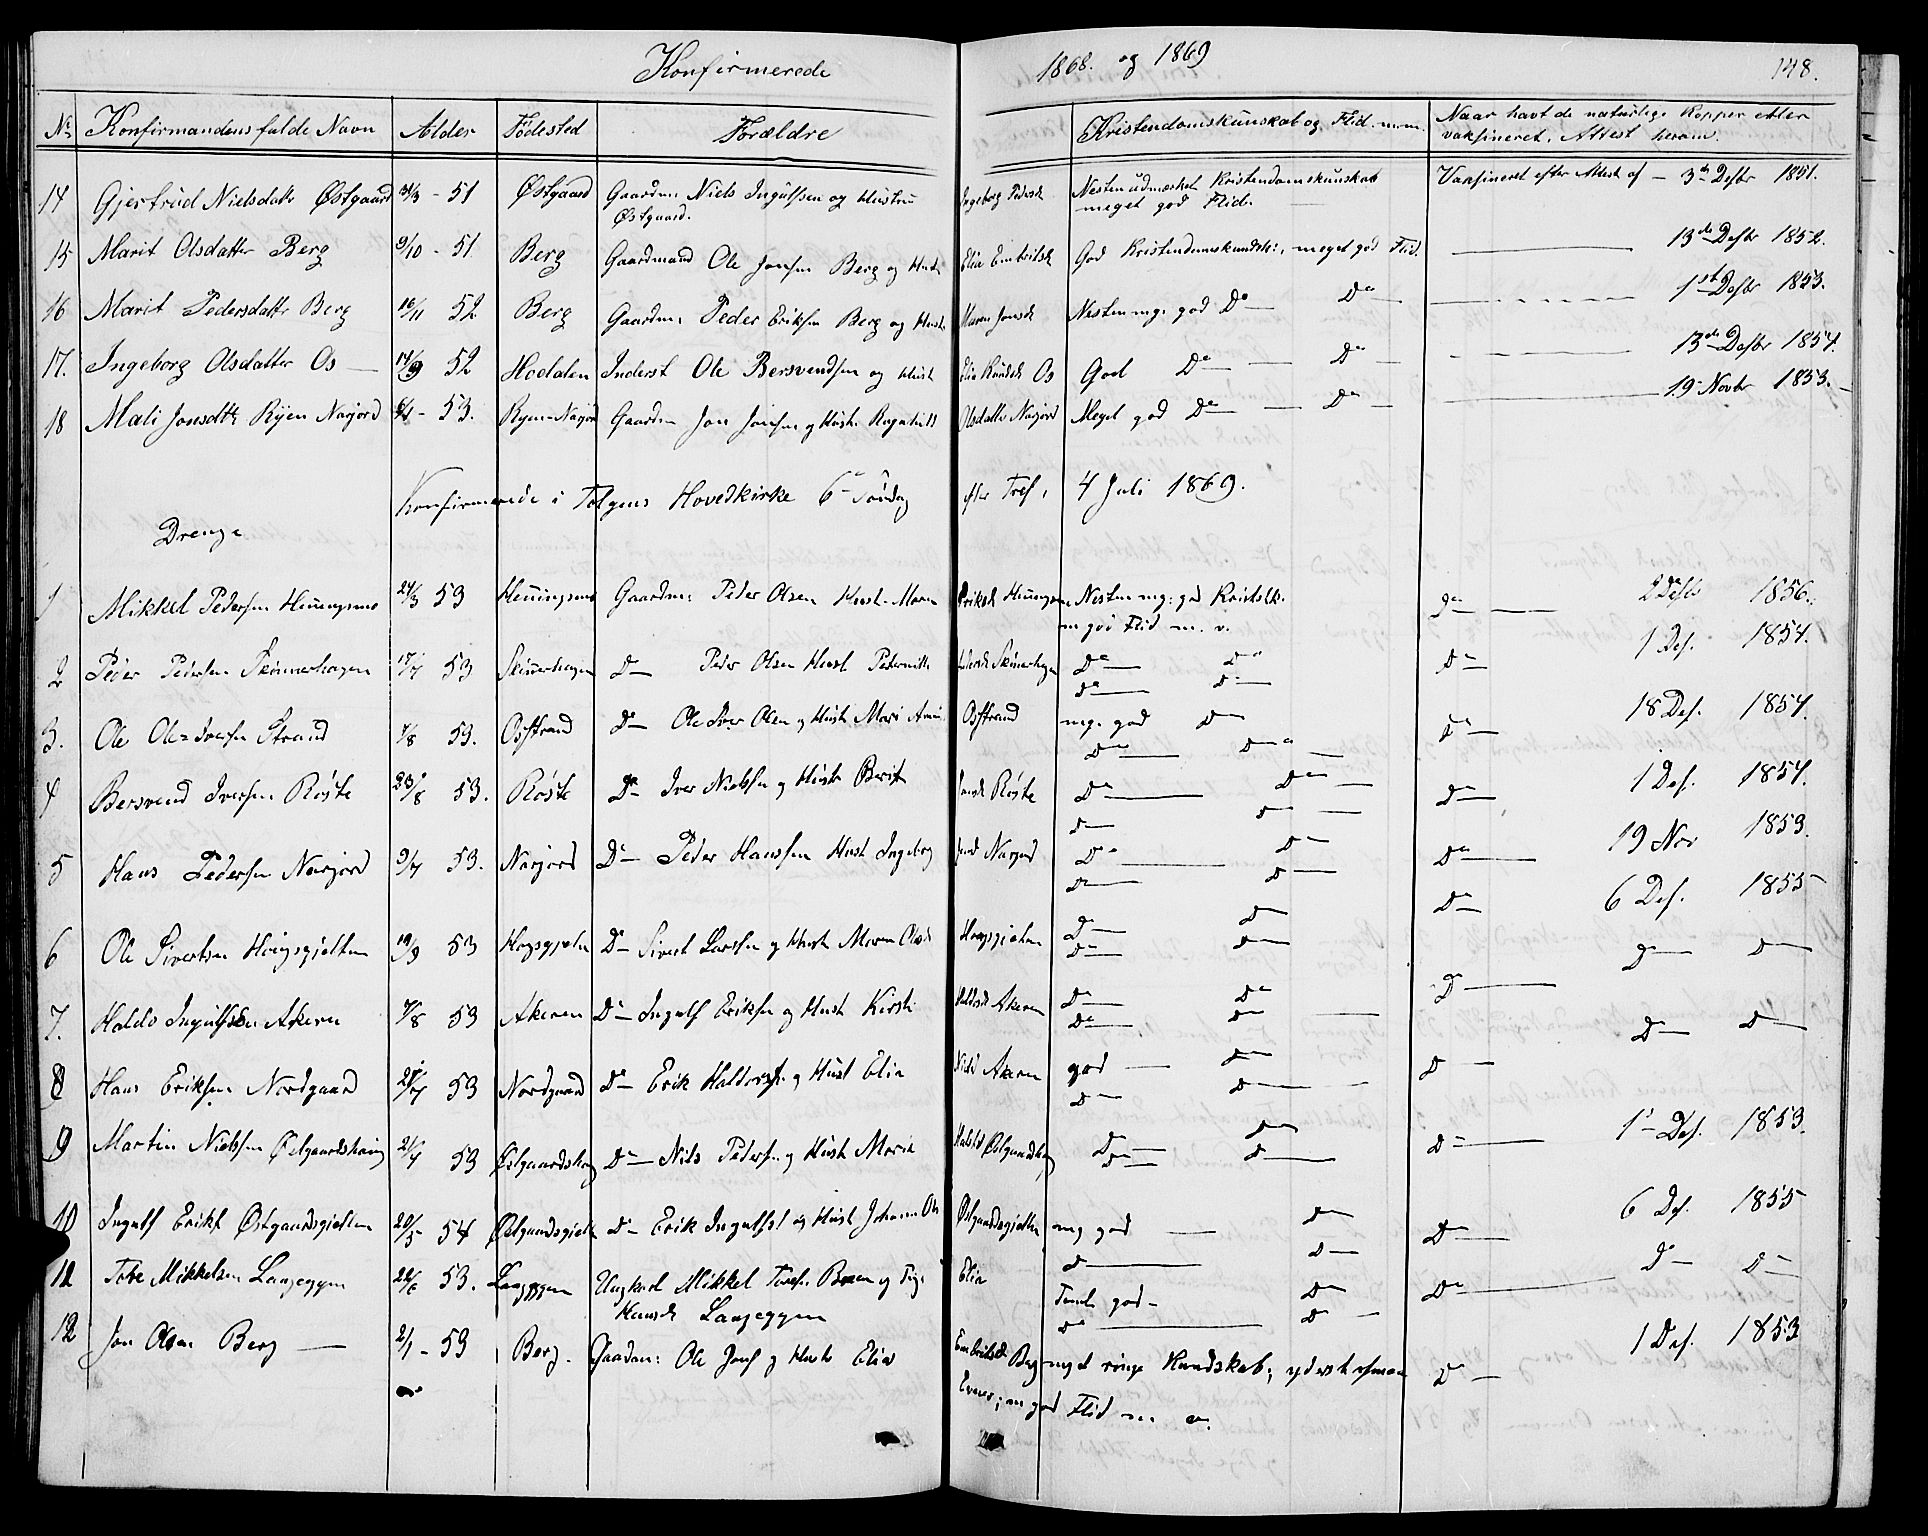 Konfirmerede 1868. og 1869 148.
No Konfirmandens fulde Navn Alder Fødested Forældre Kristendomskunskab og Flid m.m. Naar havt de naturlige Kopper eller
vaksineret. Attest herom.
14 Gjertrud Nielsdatr Østgaard 51 Østgaard Gaardm: Niels Ingulfsen og Hustru Ingeborg Pedersd. Nesten udmærket Kristendomskunskab Vaksineret efter Attest af — 3de Desbr 1851.
Østgaard. meget god Flid.
15 Marit Olsdatter Berg 9/10 - 51 Berg Gaardmand Ole Jonsen Berg og Hust. Elia Embritsd God Kristendomskundsk:, meget god Flid. 13de Desbr 1852.
16 Marit Pedersdattr Berg 16/11 52 Berg Gaardm: Peder Eriksen Berg og Hust. Maren Jonsd. Nesten mg. god Do Do 1st Desbr 1853.
17. Ingeborg Olsdatter Os 14/9 52 Hodalen Inderst Ole Bersvendsen og Hust Elia Knudsd. Os God Do Do 13de Desbr 1854.
18 Mali Jonsdtr Ryen Narjord - 53. Ryen-Narjord Gaardm Jon Jonsen og Hust. Ragnhild Olsdattr Narjord Meget god Do Do 19 Novbr 1853.
Konfirmerede i Tolgens Hovedkirke 6te Søndag efter Tref, 4 Juli 1869.
Drenge
1 Mikkel Pedersen Henningsmo 24/3 53 Henningsmo Gaardm: Peder Olsen Hust. Maren Eriksd. Henningsmo Nesten mg: god Kristdsk. Do 2 Desb 1856.
m god Flid m. v.
2 Peder Pedersen Skinnerhagen 17/7 53 Skinnerhagen Do Peder Olsen Hust Pedernille Pedersd. Skinnerhagen Do Do Do 1 Des. 1854.
Do Do
3. Ole Ole-Iversen Strand 1/8 53. Osstrand Do Ole Iver Olsen og Hust. Mari Osstrand mg. god Do Do 18 Des. 1854.
Do Do
4 Bersvend Iversen Røste 23/8 53. Røste Do Iver Nielsen og Hustr Berit Jonsd. Røste Do Do Do 1 Des. 1854.
Do Do
5 Hans Pedersen Narjord 9/7 53. Narjord Do Peder Hanssen Hust Ingeborg Narjord Do Do Do 19 Nov 1853.
Do Do
6 Ole Sivertsen Hougsgjelten 19/9 53 Hogsgjelten Do Sivert Larssen og Hust Maren Olsd. Hougsgjelten Do Do Do 6 Des. 1855
Do Do
7. Haldo Ingulfsen Akeren 7/8 53 Akeren Do Ingulf Eriksen og Hust Kirsti Haldosd Akeren Do Do Do Do Do
Do Do
8 Hans Eriksen Nordgaard 27/7 53 Nordgaard Do Erik Haldorsen og Hust Elia Nilsd Akeren god Do Do Do Do
Do Do
9 Martin Nielsen Østgaardshaug 21/7 53 Østgaardshaug Do Nils Pedersen og Hust. Marit Haldsd Østgaardshaug Do Do Do 1 Des. 1853.
Do Do
10 Ingulf Eriks Østgaardsgjelten 20/5 54 Østgaardsgjelt Do Erik Ingulfs. og Hust Johanne Ols Østgaardsgjelten mg god Do Do 6 Des. 1855
Do Do
11 Tore Mikkelsen Langeggen 22/6 53. Langeggen Ungkarl Mikkel Toresen og Pige Elia Teml. god Do Do Do Do
Hansd. Langeggen Do Do
12 Jon Olsen Berg 2/1 - 53 Berg. Gaardm: Ole Jons og Hustr Elia Embritsd. Berg meget ringe Kundskab; yderst Do 1 Des. 1853
Evner; m god Flid m v.